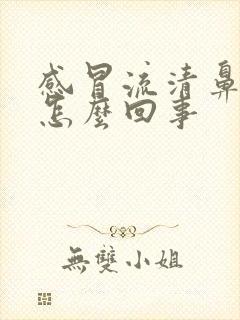 感冒流清鼻
怎麼回事
無雙小姐